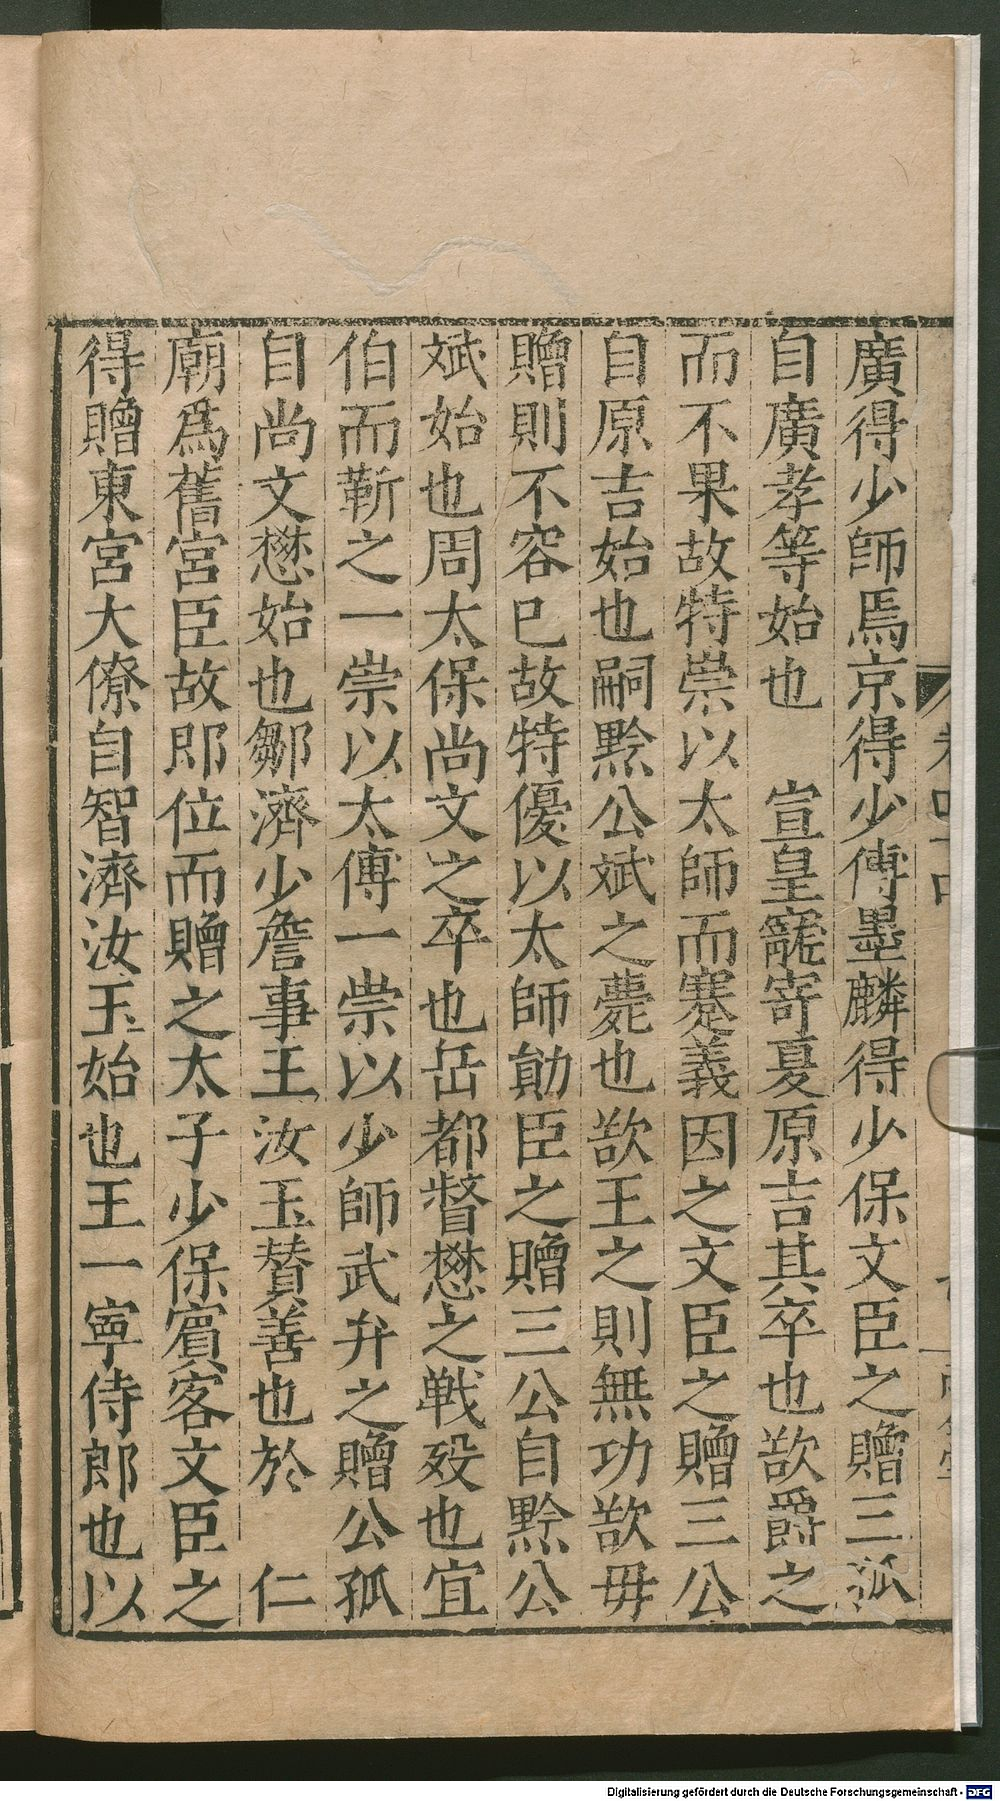 廣得少師焉京得少傅墨麟得少保文臣之贈三孤
自廣孝等始也　宣皇寵寄夏原吉其卒也欲爵之
而不果故特崇以太師而蹇義因之文臣之贈三公
自原吉始也嗣黔公斌之薨也欲王之則無功欲毋
贈則不容已故特優以太師勛臣之贈三公自黔公
斌始也周太保尚文之卒也岳都督懋之戰歿也宜
伯而靳之一崇以太傅一崇以少師武弁之贈公孤
自尚文懋始也鄒濟少詹事王汝玉贊善也於　仁
廟爲舊宮臣故即位而贈之太子少保賓客文臣之
得贈東宮大僚自智濟汝玉始也王一寧侍郎也以
Digitalisierung gefördert durch die Deutsche Forschungsgemeinschaft - DFG